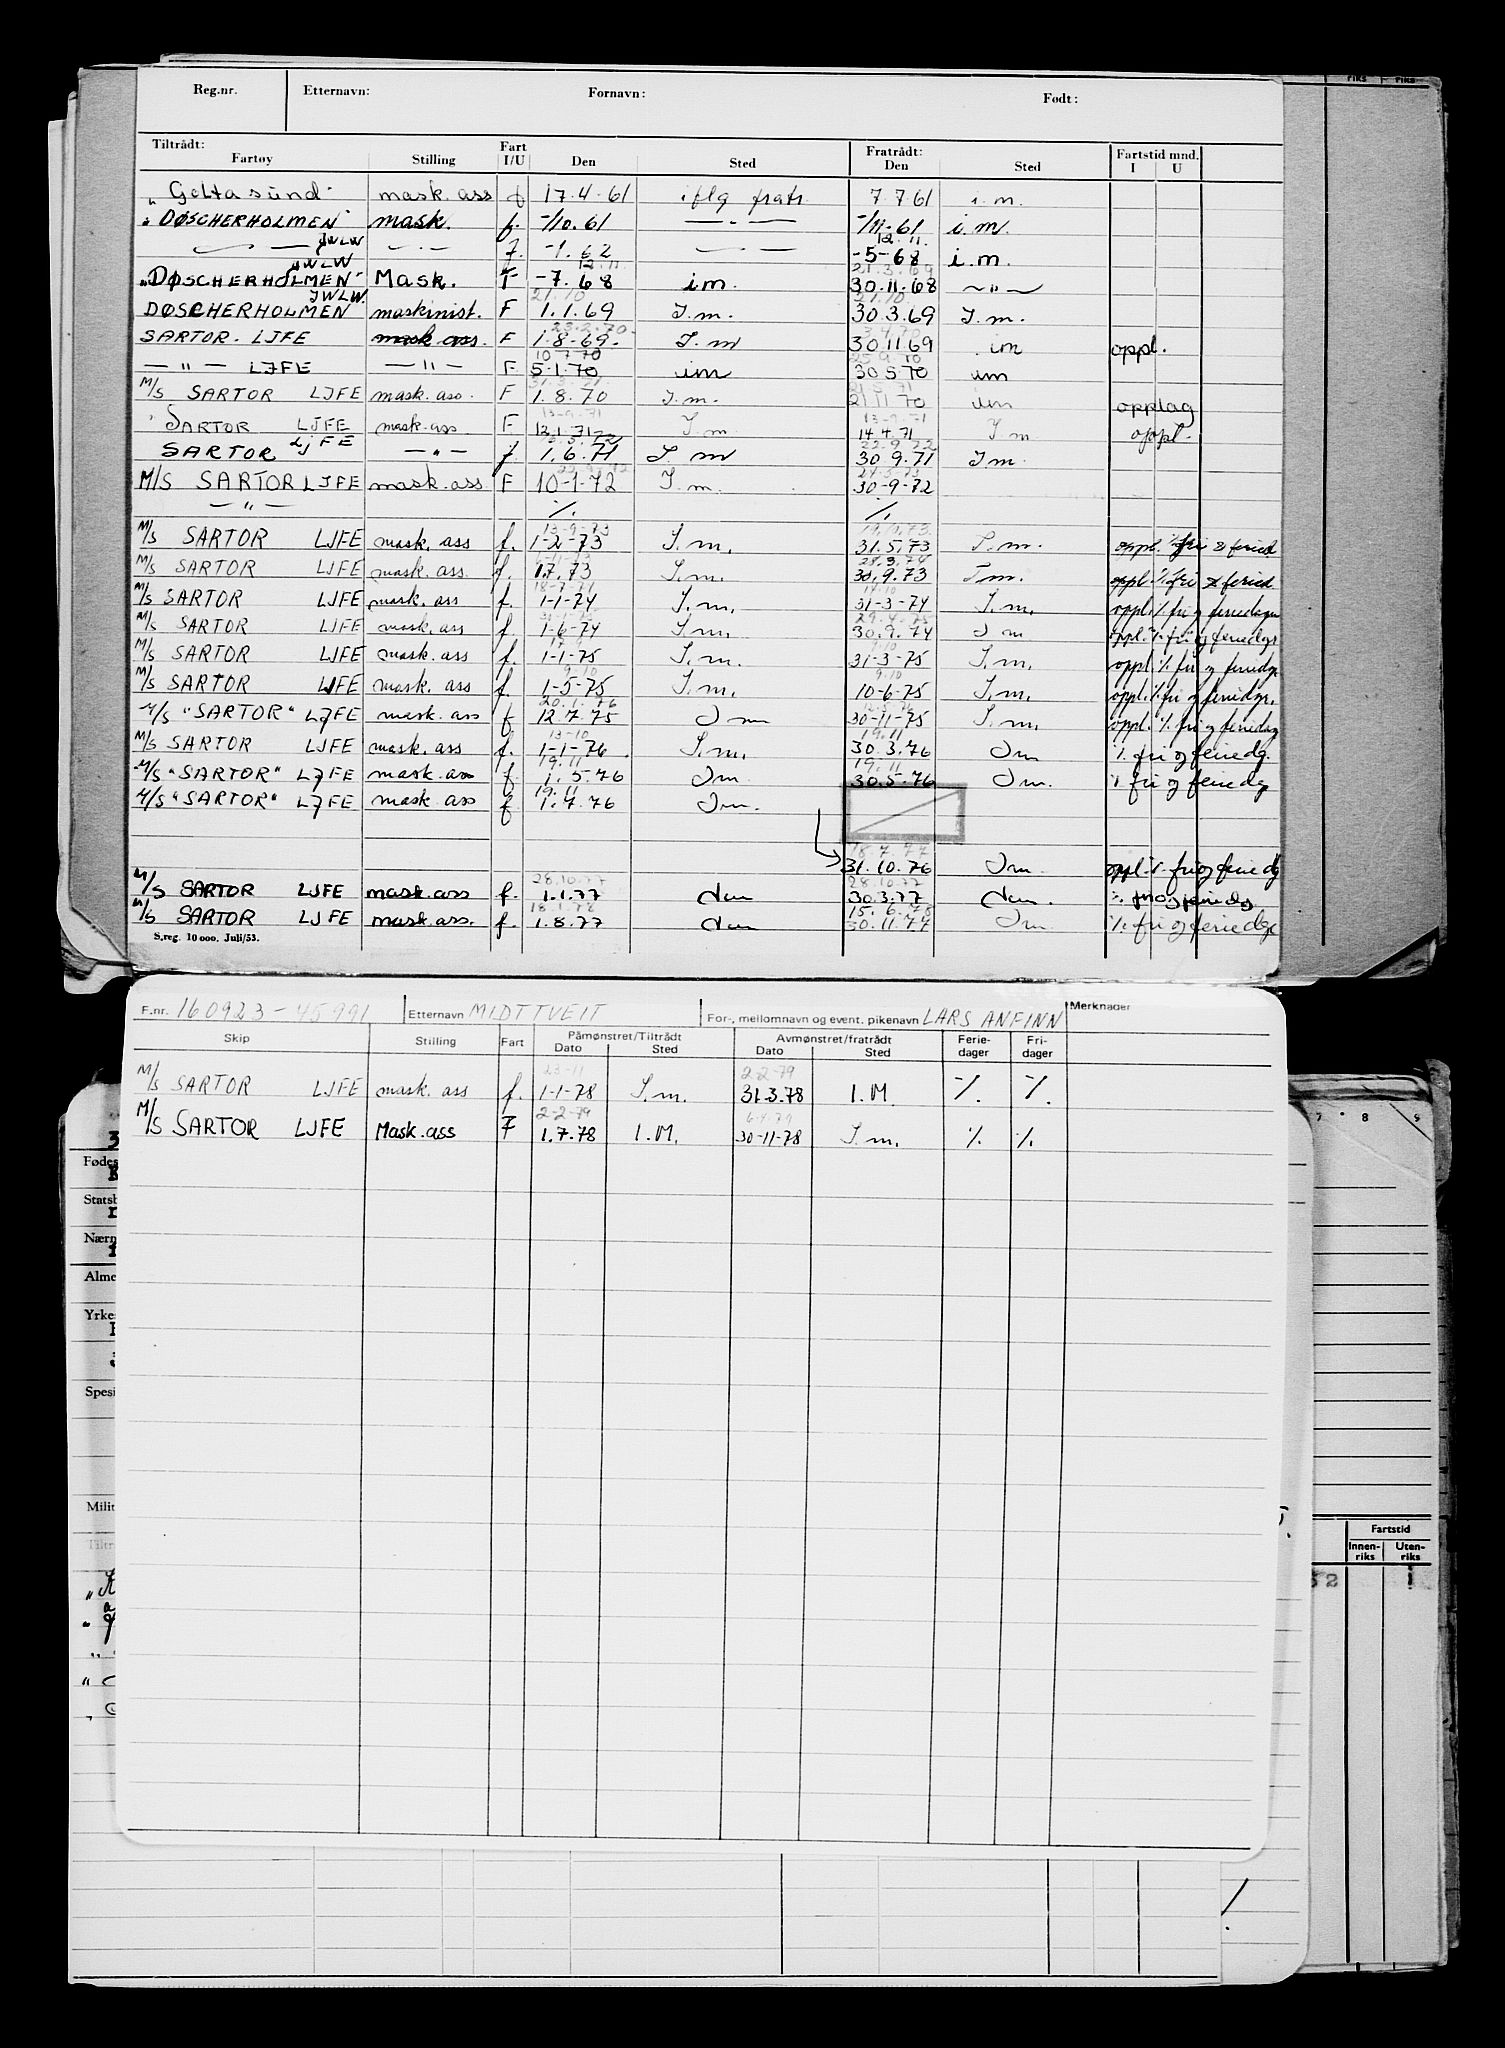 Reg.nr. Etternavn: Fornavn: Født:
Tiltrådt: Fartøy Stilling Fart I/U Den Sted Fratrådt: Den Sted Fartstid mnd. I U
"Geltasund" mask.ass f 17.4.61 iflg fratr. 7.7.61 i.m.
"DØSCHERHOLMEN" mask. f. -/10.61 — " — -/11-61 i.m.
— " — JWLW — " — f. -1.62 — " — 12.11. -5-68 i.m.
"DØSCHERHOLMEN" JWLW Mask. F 12.11. -7.68 im. 21.3.69 30.11.68 — " —
DØSCHERHOLMEN JWLW. maskinist. F 21.10 1.1.69 I.m. 21.10. 30.3.69 I.m.
SARTOR. LJFE mask.ass. F 23.2.70. 1.8.69. I.m 30.11.69 im oppl.
— " — LJFE — " — F 10.7.70 5.1.70 im 25.9.70 30.5.70 im
M/S SARTOR LJFE mask.ass. F 1.8.70 I.m. 21.5.71 21.11.70 im opplag
" SARTOR LJFE mask.ass F 13-9-71 12.1.71 I.m 13-9-71 14.4.71 I m oppl.
SARTOR LJFE — " — f. 1.6.71 I.m 22.9.72 30.9.71 Im.
M/S SARTOR LJFE mask.ass F 10-1-72 I.m. 30-9-72
— " — ./. ./.
M/S SARTOR LJFE mask.ass f. 13-9-73 1-2-73 I.m. 19.10.73 31.5.73 I.m. oppl. ./. fri & feried
M/S SARTOR LJFE mask.ass. f. 1.7.73 I.m. 30.9.73 I.m. oppl. ./. fri & feried.
M/S SARTOR LJFE mask.ass f. 1-1-74 I.m. 31-3-74 I.m. oppl. ./. fri og feriedager
M/S SARTOR LJFE mask.ass f. 1-6-74 I.m. 29.4.75 30.9.74 I m oppl. ./. fri og feriedgr.
M/S SARTOR LJFE mask.ass f. 1-1-75 I.m. 9.10 31-3-75 I.m. oppl. ./. fri og feriedge
M/S SARTOR LJFE mask.ass f. 9.10 1-5-75 I.m. 9.10 10-6-75 I.m. oppl. ./. fri og feriedgr.
M/S "SARTOR" LJFE mask.ass f 20.1.76 12.7.75 Im 30-11-75 I.m. oppl. ./. fri og feriedag
M/S SARTOR LJFE mask.ass f. 13-10 1-1-76 I.m. 19.11 30.3.76 Im ./. fri og feriedg.
M/S "SARTOR" LJFE mask.ass f. 19.11 1.5.76 Im. 19.11 30.5.76 Im. ./. fri og feriedg
M/S "SARTOR" LJFE mask.ass f 19.11 1.7.76 Im.
18.7.77 31.10.76 Im. oppl. ./. fri og feriedg
M/S SARTOR LJFE mask.ass f. 28.10.77 1.1.77 Im 28.10.77 30.3.77 Im. ./. fri og feriedg
M/S SARTOR LJFE mask.ass. f. 18.1.78 1.8.77 Im 15.6.78 30.11.77 Im. ./. fri og feriedgr
S.reg. 10 000. Juli/53.
F.nr. 160923-45991 Etternavn MIDTTVEIT For-, mellomnavn og event. pikenavn LARS ANFINN Merknader
Skip Stilling Fart Påmønstret/Tiltrådt Dato Sted Avmønstret/fratrådt Dato Sted Ferie-dager Fri-dager
M/S SARTOR LJFE mask.ass f. 23-11 1-1-78 I.m. 2-2-79 31.3.78 I.M. ./. ./.
M/S SARTOR LJFE Mask.ass F 2-2-79 1.7.78 I.M. 6.4.79 30-11-78 I.m. ./. ./.
Fødes
Statsb
Nærm
Alme
Yrke
Spesi
Milit
Tiltr
7 8 9
Fartstid
Innen-riks Uten-riks
52 1